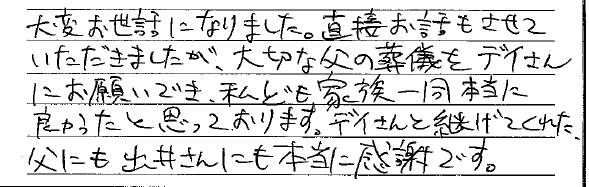 大変お世話になりました。直接お話もさせて
いただきましたが、大切な父の葬儀をデイさん
にお願いでき、私ども家族一同本当に
良かったと思っております。デイさんと継げてくれた、
父にも出井さんにも本当に感謝です。